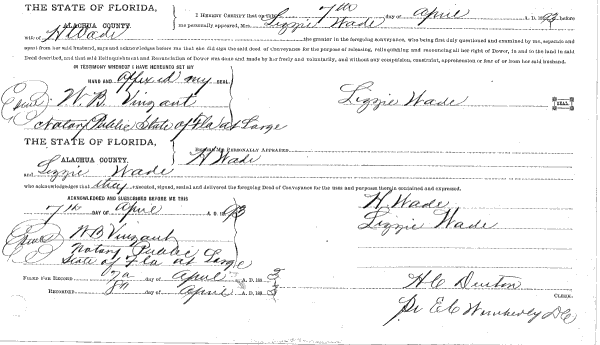 THE STATE OF FLORIDA,
ALACHUA COUNTY.
I HEREBY CERTIFY that on this 7th day of April A. D. 1893 before
me personally appeared, Mrs. Lizzie Wade
wife of H Wade the grantor in the foregoing conveyance, who being first duly questioned and examined by me, separate and
apart from her said husband, says and acknowledges before me that she did sign the said deed of Conveyance for the purpose of releasing, relinquishing and renouncing all her right of Dower, in and to the land in said
Deed described, and that said Relinquishment and Renunciation of Dower was done and made by her freely and voluntarily, and without any compulsion, constraint, apprehension or fear of or from her said husband.
IN TESTIMONY WHEREOF I HAVE HEREUNTO SET MY
HAND AND affixed my SEAL.
W. B. Vinzant
Lizzie Wade SEAL
Notary Public State of Fla at Large
THE STATE OF FLORIDA,
ALACHUA COUNTY.
BEFORE ME PERSONALLY APPEARED
H Wade
and Lizzie Wade
who acknowledges that they executed, signed, sealed and delivered the foregoing Deed of Conveyance for the uses and purposes therein contained and expressed.
ACKNOWLEDGED AND SUBSCRIBED BEFORE ME THIS
7th DAY OF April A. D. 1893
H. Wade
Lizzie Wade
W B Vinzant
Notary Public
State of Fla at Large
FILED FOR RECORD 7th day of April A. D. 1893
RECORDED 8th day of April A. D. 1893
H C Denton
CLERK.
Pr E C Wimberly D C